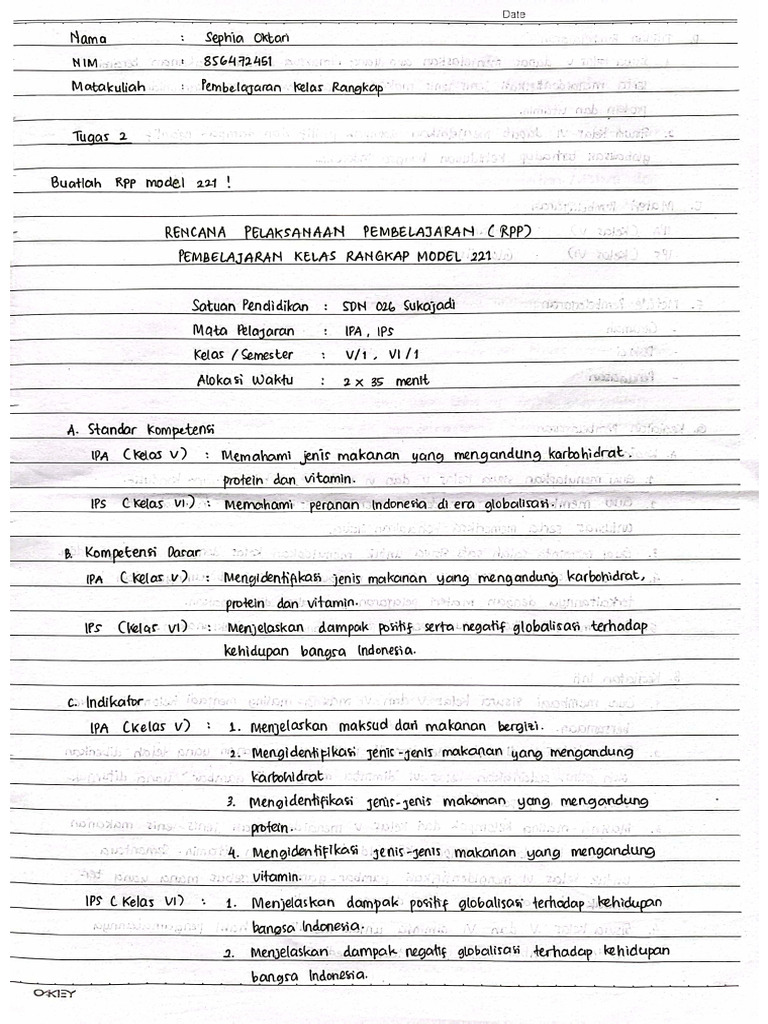 Date
Nama : Sephia Oktari
NIM : 856472451
Matakuliah : Pembelajaran Kelas Rangkap
Tugas 2
Buatlah RPP model 221 !
RENCANA PELAKSANAAN PEMBELAJARAN (RPP)
PEMBELAJARAN KELAS RANGKAP MODEL 221
Satuan Pendidikan : SDN 026 Sukajadi
Mata Pelajaran : IPA, IPS
Kelas / Semester : V/1, VI/1
Alokasi Waktu : 2 x 35 menit
A. Standar Kompetensi
IPA (Kelas V) : Memahami jenis makanan yang mengandung karbohidrat.
protein dan vitamin.
IPS (Kelas VI) : Memahami peranan Indonesia di era globalisasi.
B. Kompetensi Dasar
IPA (Kelas V) : Mengidentifikasi jenis makanan yang mengandung karbohidrat,
protein dan vitamin.
IPS (Kelas VI) : Menjelaskan dampak positif serta negatif globalisasi terhadap
kehidupan bangsa Indonesia.
C. Indikator
IPA (Kelas V) : 1. Menjelaskan maksud dari makanan bergizi.
2. Mengidentifikasi jenis-jenis makanan yang mengandung
karbohidrat
3. Mengidentifikasi jenis-jenis makanan yang mengandung
protein.
4. Mengidentifikasi jenis-jenis makanan yang mengandung
vitamin.
IPS (Kelas VI) : 1. Menjelaskan dampak positif globalisasi terhadap kehidupan
bangsa Indonesia.
2. Menjelaskan dampak negatif globalisasi terhadap kehidupan
bangsa Indonesia.
OKEY